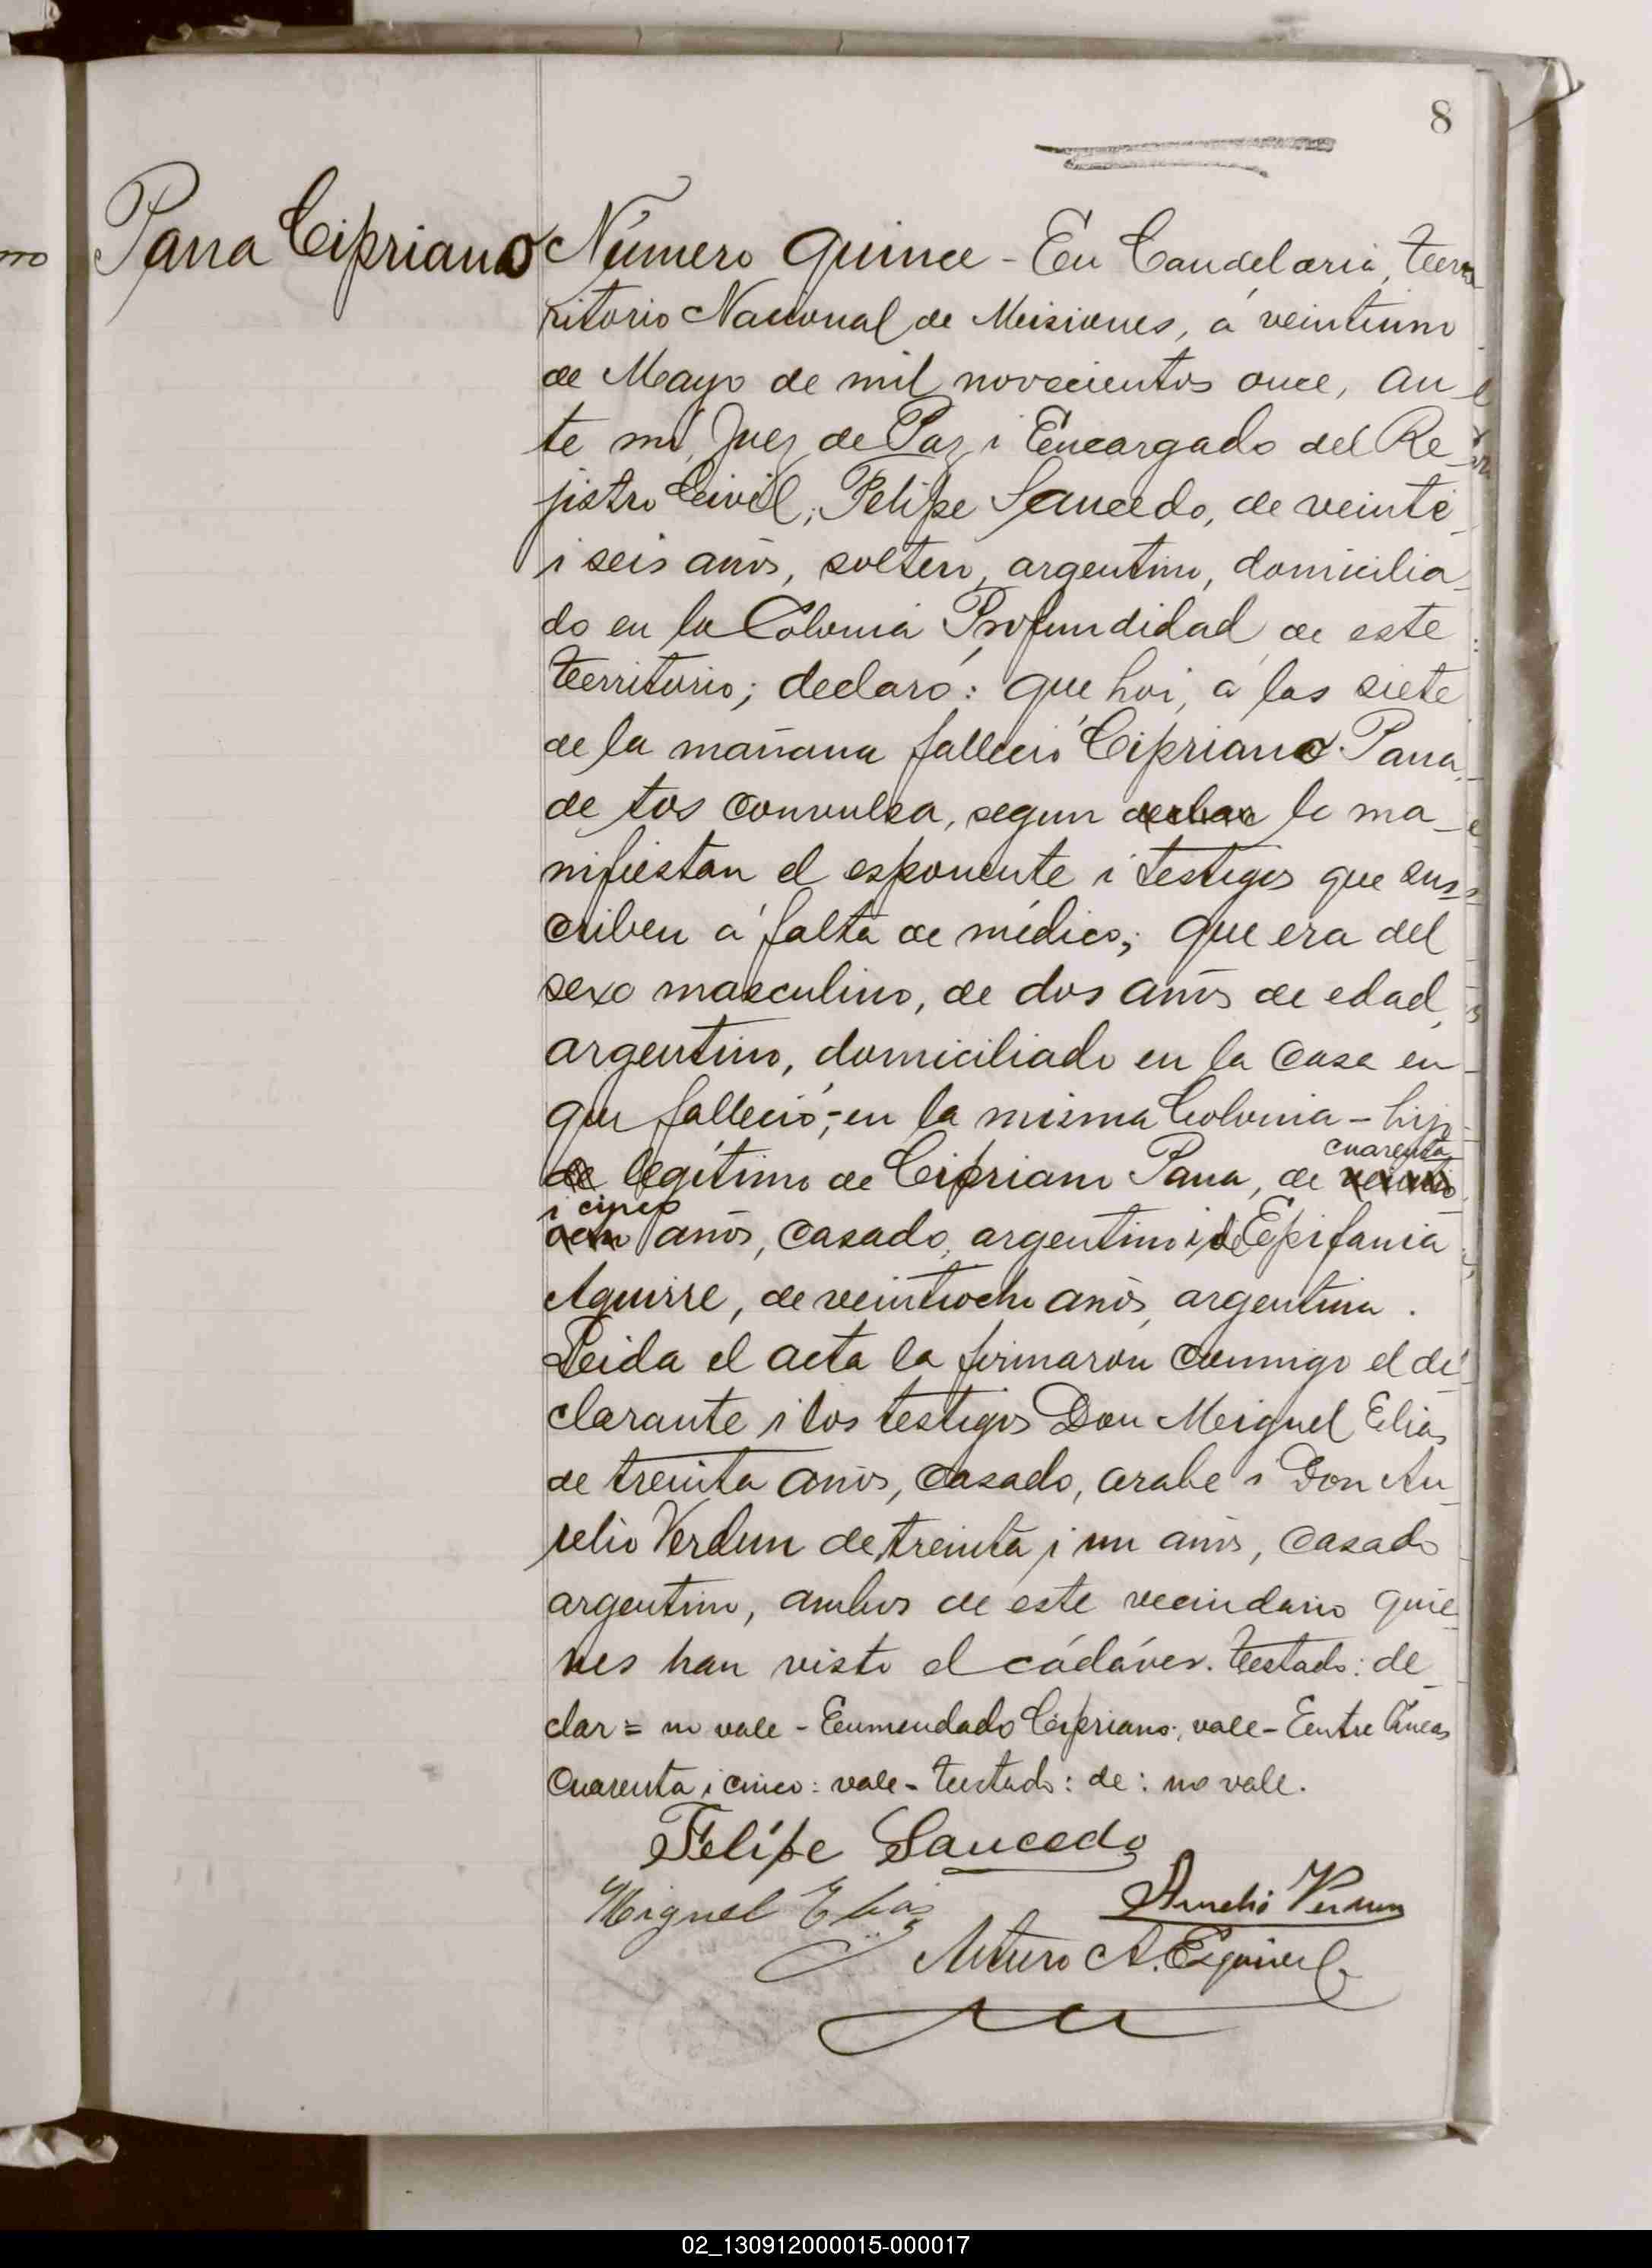 8
Parra Cipriano
Número quince - En Candelaria, terri
ritorio Nacional de Misiones, á veintiuno
de Mayo de mil novecientos once, an
te mí, Juez de Paz i Encargado del Re
jistro Civil, Felipe Saucedo, de veinte
i seis años, soltero, argentino, domicilia
do en la Colonia Profundidad de este
territorio; declaró: que hoi, á las siete
de la mañana falleció Cipriano Parra,
de tos convulsa, segun declar lo ma
nifiestan el esponente i testigos que sus
criben á falta de médico; que era del
sexo masculino, de dos años de edad,
argentino, domiciliado en la casa en
que falleció; en la misma Colonia - hijo
cuarenta
de legítimo de Cipriano Parra, de veinti
i cinco
ocho años, casado, argentino i de Epifania
Aguirre, de veintiocho años, argentina.
Leida el acta la firmaron conmigo el de
clarante i los testigos Don Miguel Elias
de treinta años, casado, arabe i Don Au
relio Verdun de treinta i un años, casado
argentino, ambos de este vecindario quie
nes han visto el cádáver. Testado: de
clar = no vale - Enmendado Cipriano: vale - Entre líneas
Cuarenta i cinco: vale - testado: de: no vale.
Felipe Saucedo
Miguel Elias
Aurelio Verdun
Arturo A. Esquivel
02_130912000015-000017